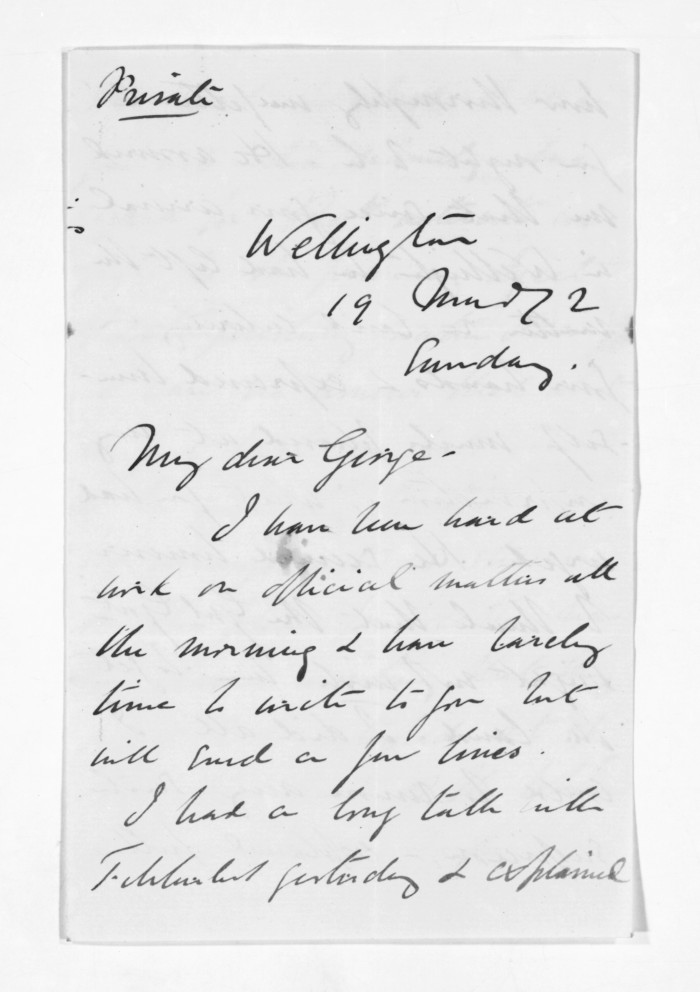 Private
Wellington
19 72
Sunday.
My dear George -
I have been hard at
work on official matters all
the morning & have barely
time to write to you but
will send a few lines.
I had a long talk with
Fitzherbert yesterday & explained